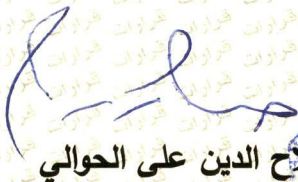 ح الدين على الحوالي